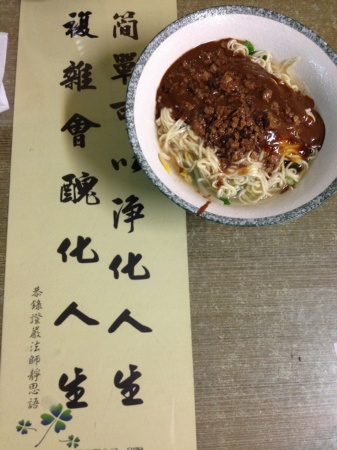 簡單可以淨化人生
複雜會醜化人生
恭錄證嚴法師靜思語